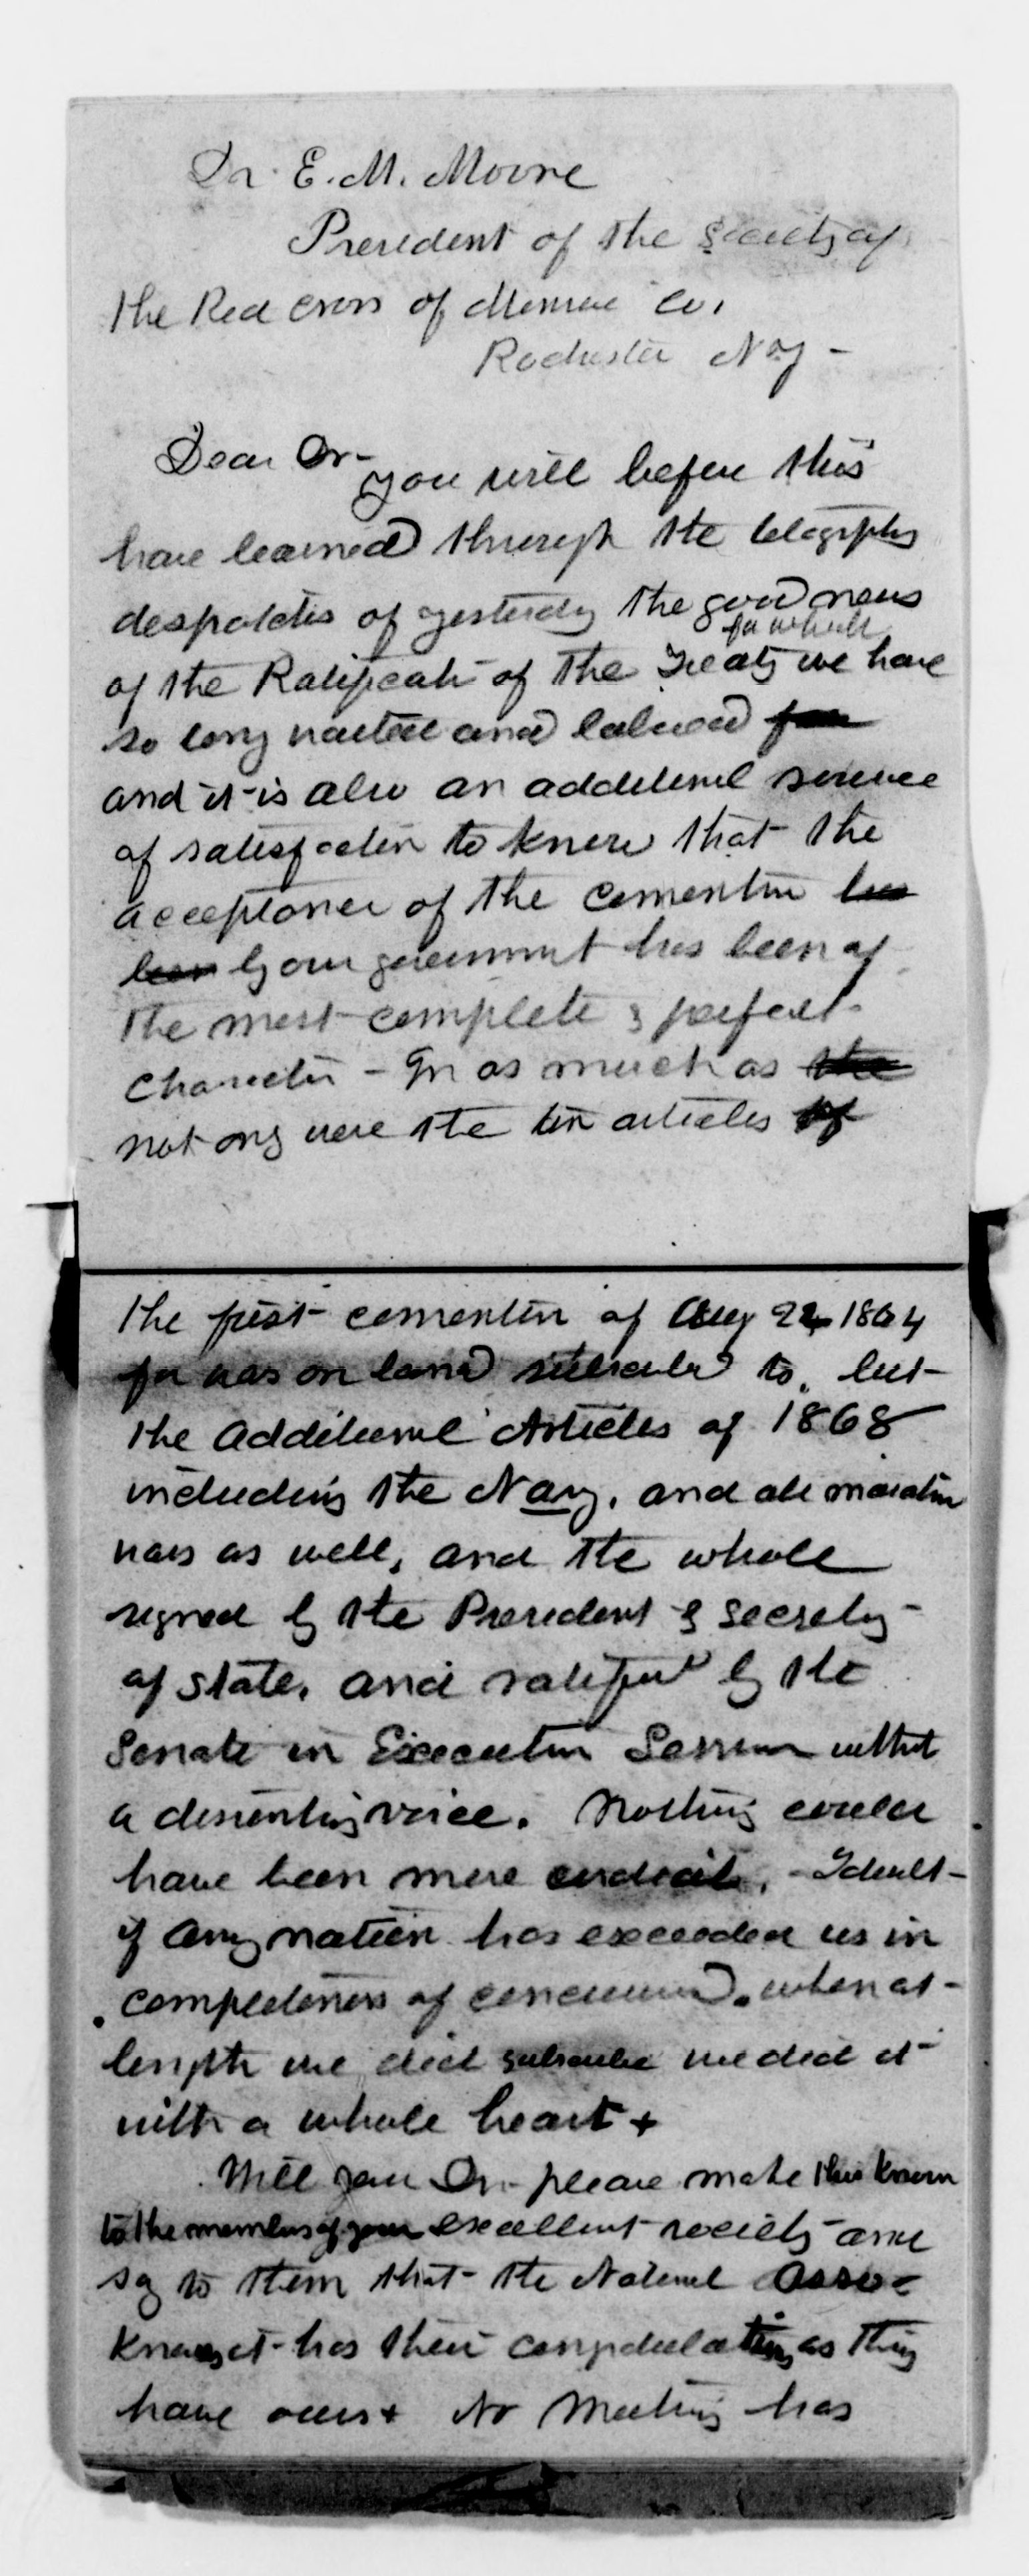 Dr. E. M. Moore
President of the Society of
the Red Cross of Monroe Co.
Rochester N.y -
Dear Dr-
you will before this
have learned through the telegraphic
despatches of yesterday the good news
for which
of the Ratificati of the Treaty we have
so long waited and labored for
and it is also an additional source
of satisfaction to know that the
acceptance of the convention has
been by our government has been of
the most complete & perfect
character - In as much as the
not ony were the ten articles of
the first convention of Aug 22 1864
for wars on land subscribed to, but
the Additional Articles of 1868
including the Navy, and all maratime
wars as well, and the whole
signed by the President & Secrety
of State, and ratified by the
Senate in Executive Session without
a dissenting voice. Nothing could
have been more cordial, - I doubt
if any nation has exceeded us in
completeness of concurrence. when at
length we did subscribe we did it
with a whole heart +
Will you Dr - please make this known
to the members of your excellent society and
say to them that the National Asso-
knows it has their congratulations as they
have ours + No Meeting has